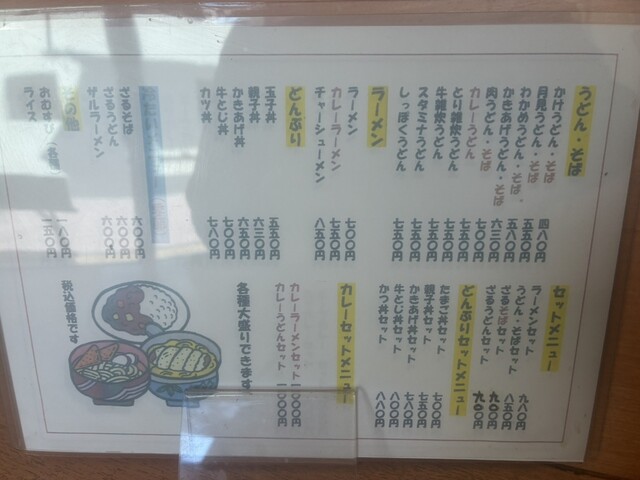 うどん・そば
かけうどん・そば 四八〇円
月見うどん・そば 五五〇円
わかめうどん・そば 五八〇円
かきあげうどん・そば 六三〇円
肉うどん・そば 七〇〇円
カレーうどん 七五〇円
とり雑炊うどん 七五〇円
牛雑炊うどん 七五〇円
スタミナうどん 七五〇円
しっぽくうどん 七五〇円
ラーメン
ラーメン 七〇〇円
カレーラーメン 七五〇円
チャーシューメン 八五〇円
どんぶり
玉子丼 五五〇円
親子丼 六三〇円
かきあげ丼 六五〇円
牛とじ丼 七〇〇円
カツ丼 七八〇円
ざるそば 六〇〇円
ざるうどん 六〇〇円
ザルラーメン 六〇〇円
その他
おむすび
ライス 一五〇円
セットメニュー
ラーメンセット 九八〇円
うどん・そばセット 八五〇円
ざるそばセット 九〇〇円
ざるうどんセット 九〇〇円
どんぶりセットメニュー
たまご丼セット 七〇〇円
親子丼セット 七五〇円
かきあげ丼セット 七八〇円
牛とじ丼セット 八〇〇円
かつ丼セット 八八〇円
カレーセットメニュー
カレーラーメンセット 一〇〇〇円
カレーうどんセット 一〇〇〇円
各種大盛りできます
税込価格です